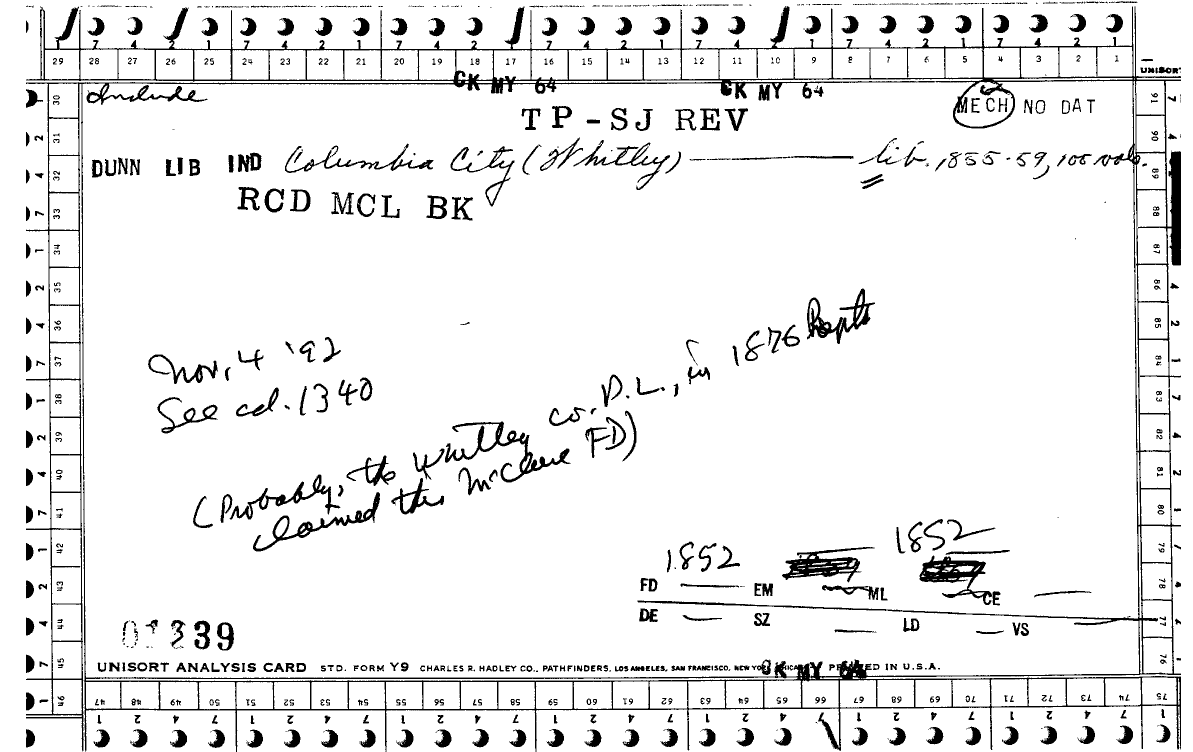 7 4 2 1 7 4 2 1 7 4 2 1 7 4 2 1 7 4 2 1 7 4 2 1 7 4 2 1
29 28 27 26 25 24 23 22 21 20 19 18 17 16 15 14 13 12 11 10 9 8 7 6 5 4 3 2 1
UNISORT
CK MY 64 CK MY 64
Include
MECH NO DAT
TP-SJ REV
DUNN LIB IND Columbia City (Whitley) — lib. 1855-59, 100 vols.
RCD MCL BK
Nov. 4 '92
See cd. 1340
(Probably, the Whitley co. P.L., in 1876 Repts
claimed this McClure FD)
1852 1852
FD EM ML CE
DE SZ LD VS
01339
UNISORT ANALYSIS CARD STD. FORM Y9 CHARLES R. HADLEY CO., PATHFINDERS, LOS ANGELES, SAN FRANCISCO, NEW YORK, CHICAGO PRINTED IN U.S.A.
CK MY 64
30 31 32 33 34 35 36 37 38 39 40 41 42 43 44 45 46
91 90 89 88 87 86 85 84 83 82 81 80 79 78 77 76 75
47 48 49 50 51 52 53 54 55 56 57 58 59 60 61 62 63 64 65 66 67 68 69 70 71 72 73 74
1 2 4 7 1 2 4 7 1 2 4 7 1 2 4 7 1 2 4 7 1 2 4 7 1 2 4 7